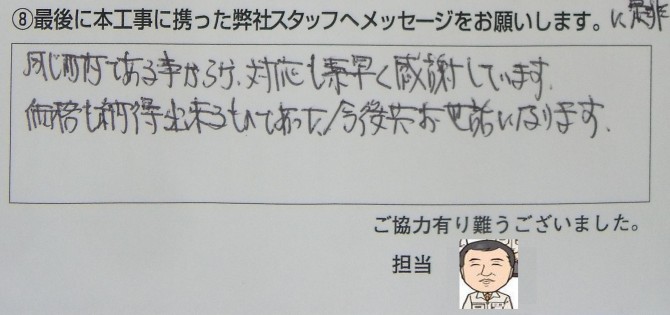 に是非
⑧最後に本工事に携った弊社スタッフへメッセージをお願いします。
同じ町内である事からか、対応も素早く感謝しています。
価格も納得出来るものであった。今後共お世話になります。
ご協力有り難うございました。
担当